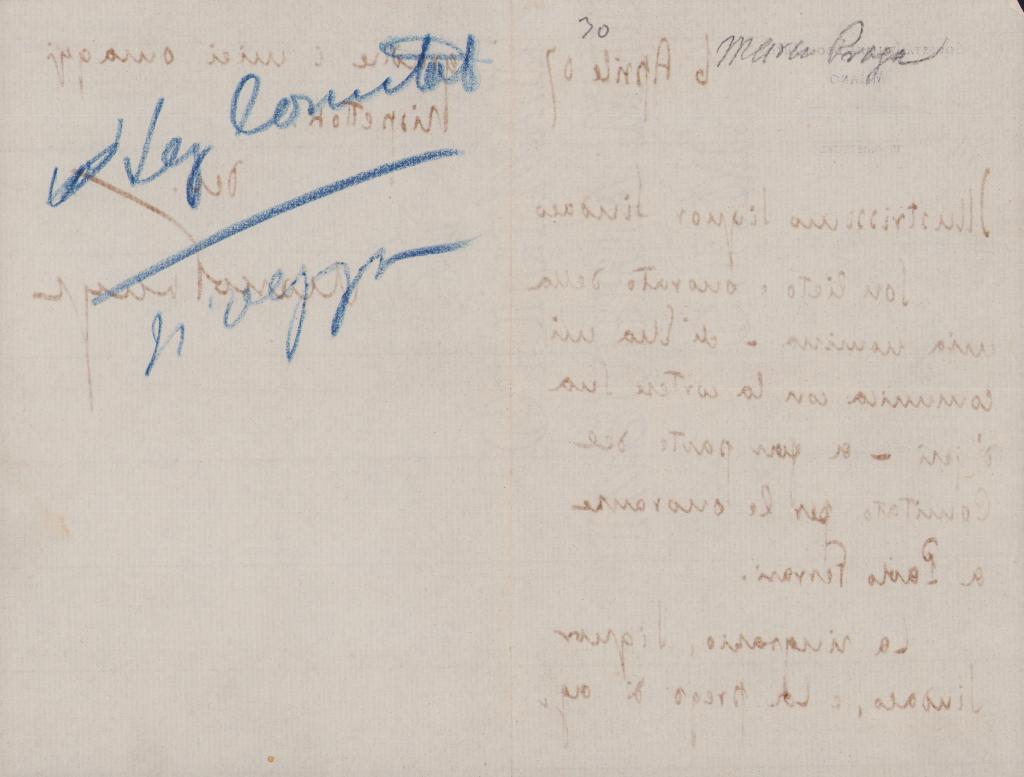 30
Marco Praga
6 Aprile 07
Illustrissimo Signor Sindaco
Son lieto e onorato della
mia nomina - ch'Ella mi
comunica con la cortese Sua
d'jeri - a far parte del
Comitato per le onoranze
a Paolo Ferrari.
La ringrazio, Signor
Sindaco, e La prego di ag
i miei omaggi
rispettosi
dev.
Marco Praga
Comitat